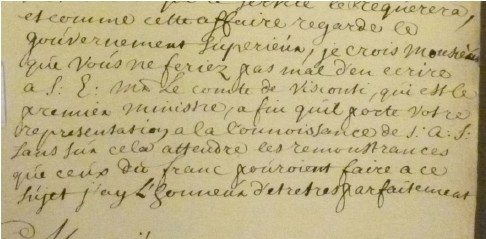 service le requerera,
et comme cette affaire regarde le
gouvernement superieur, je crois Monsieur
que vous ne feriez pas mal d'en ecrire
a S: E: Mr Le comte de Visconti, qui est le
premier ministre, afin qu'il porte votre
representation a la connoissance de S: A: S:
sans sur cela attendre les remonstrances
que ceux du franc pouroient faire a ce
sujet j'ay L'honneur d'etre tres parfaitement